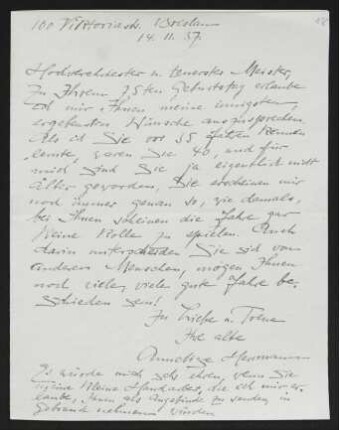 100 Viktoriastr. Breslau
14. II. 37.
Hochverehrtester u. teuerster Meister,
Zu Ihrem 75ten Geburtstag erlaube
ich mir Ihnen meine innigsten,
ergebensten Wünsche auszusprechen.
Als ich Sie vor 35 Jahren kennen
lernte, waren Sie 40, und für
mich sind Sie ja eigentlich nicht
älter geworden, Sie erscheinen mir
noch immer genau so, wie damals,
bei Ihnen scheinen die Jahre gar
keine Rolle zu spielen. Auch
darin unterscheiden Sie sich von
anderen Menschen, mögen Ihnen
noch viele, viele gute Jahre be-
schieden sein!
In Liebe u. Treue
Ihre alte
Herrmann
Es würde mich sehr ehren, wenn Sie
meine kleine Handarbeit, die ich mir er-
laube, Ihnen als Angebinde zu senden, in
Gebrauch nehmen würden